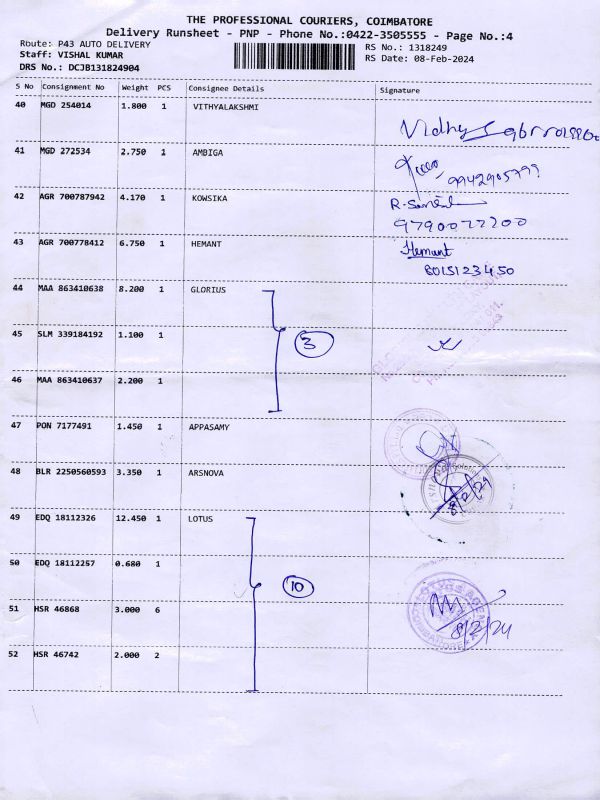 THE PROFESSIONAL COURIERS, COIMBATORE
Delivery Runsheet - PNP - Phone No.:0422-3505555 - Page No.:4
Route: P43 AUTO DELIVERY
RS No.: 1318249
Staff: VISHAL KUMAR
RS Date: 08-Feb-2024
DRS No.: DCJB131824904
S No Consignment No Weight PCS Consignee Details Signature
40 MGD 254014 1.800 1 VITHYALAKSHMI
Vidhya
41 MGD 272534 2.750 1 AMBIGA
9942905799
42 AGR 700787942 4.170 1 KOWSIKA
R.
9790077200
43 AGR 700778412 6.750 1 HEMANT
Hemant
8015123450
44 MAA 863410638 8.200 1 GLORIUS
45 SLM 339184192 1.100 1
3
46 MAA 863410637 2.200 1
47 PON 7177491 1.450 1 APPASAMY
48 BLR 2250560593 3.350 1 ARSNOVA
8/2/24
49 EDQ 18112326 12.450 1 LOTUS
50 EDQ 18112257 0.680 1
10
51 HSR 46868 3.000 6
8/2/24
52 HSR 46742 2.000 2